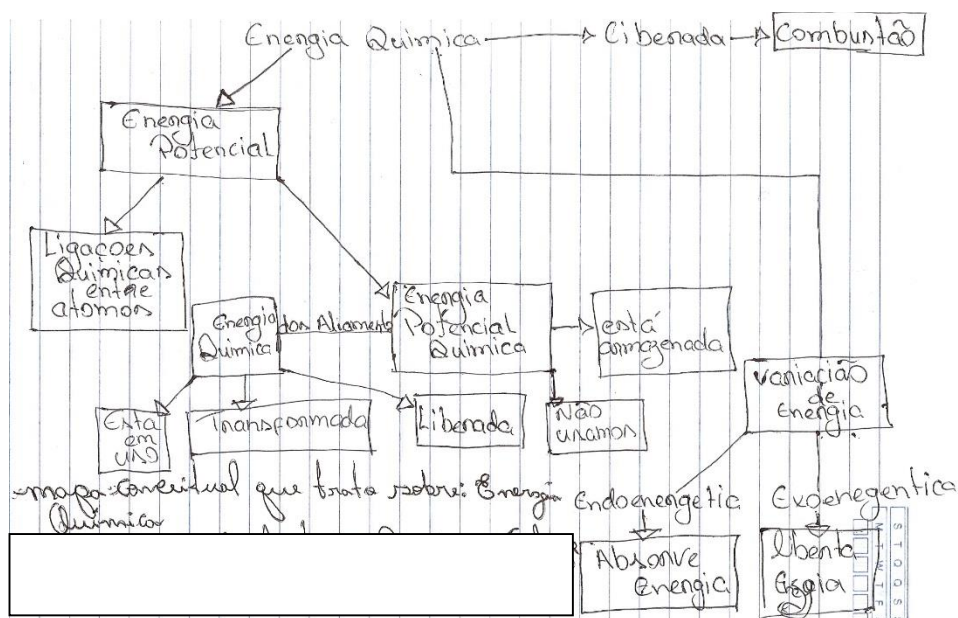 Energia Química
Liberada
Combustão
Energia
Potencial
Ligações
Químicas
entre
atomos
Energia
Química
dos Aliamento
Energia
Potencial
Química
está
armazenada
Variação
de
Energia
Esta
em
uso
Transformada
Liberada
Não
usamos
mapa conceitual que trata sobre: Energia
Química
Endoenergetic
Exoenegentica
Absorve
Energia
libenta
S T Q Q S
M T W T F